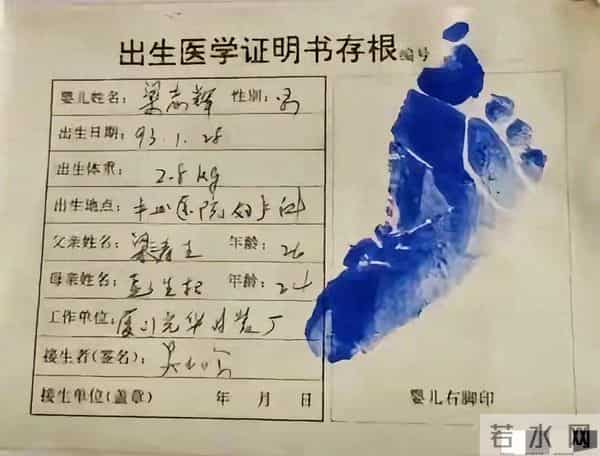 出生医学证明书存根 编号
婴儿姓名: 梁志辉 性别: 男
出生日期: 93.1.28
出生体重: 2.8 kg
出生地点: 中山医院妇产科
父亲姓名: 梁清 年龄: 26
母亲姓名: 彭 年龄: 24
工作单位: 厦门光华时装厂
接生者(签名): 吴
接生单位(盖章) 年 月 日
婴儿右脚印
若水网